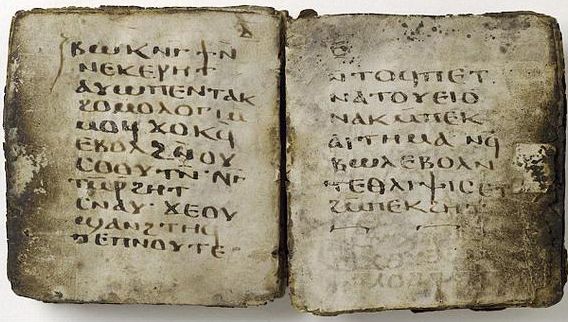 ⲃⲱⲕⲛⲅϯⲛ
ⲛⲉⲕⲉⲣⲏⲧ
ⲁⲩⲱⲡⲉⲛⲧⲁⲕ
ϩⲟⲙⲟⲗⲟⲅⲓⲁ
ⲙⲙⲟϥϫⲟⲕϥ
ⲉⲃⲟⲗϩⲛⲟⲩ
ⲥⲟⲟⲩⲧⲛ· ⲛⲅ
ⲧⲙⲣϩⲏⲧ
ⲥⲛⲁⲩ· ϫⲉⲟⲩ
ϣⲁⲛϩⲧⲏϥ
ⲡⲉⲡⲛⲟⲩⲧⲉ
ⲛⲧⲟϥⲡⲉⲧ
ⲛⲁⲧⲟⲩⲉⲓⲟ
ⲛⲁⲕⲙⲡⲉⲕ
ⲁⲓⲧⲏⲙⲁ ⲛϥ
ⲃⲱⲗⲉⲃⲟⲗⲛ
ⲧⲉⲑⲗⲓⲯⲓⲥⲉⲧ
ϩⲙⲡⲉⲕϩⲏⲧ